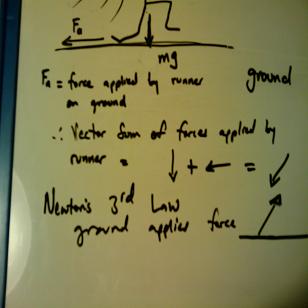 Fa
mg
Fa = force applied by runner
on ground
ground
∴ Vector Sum of forces applied by
runner = ↓ + ← = ↙
Newton's 3rd Law
ground applies force